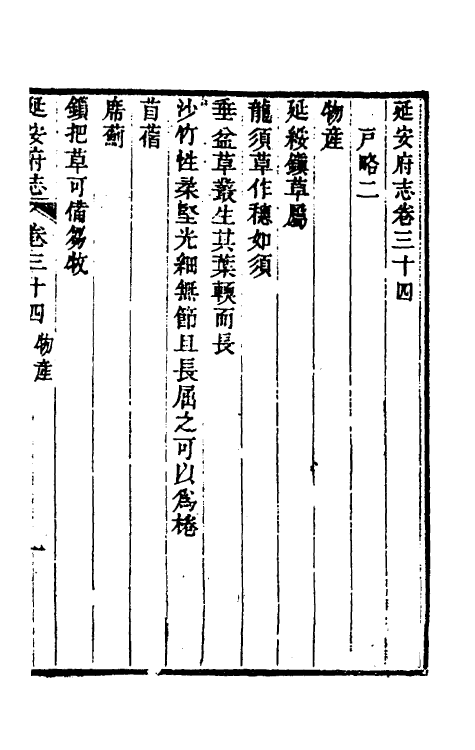 延安府志卷三十四
戸略二
物産
延綏鎭草屬
龍須草作穗如須
垂盆草叢生其葉輭而長
沙竹性柔堅光細無節且長屈之可以爲棬
苜蓿
席蓟
鎻把草可備芻牧
延安府志 卷三十四 物産 一